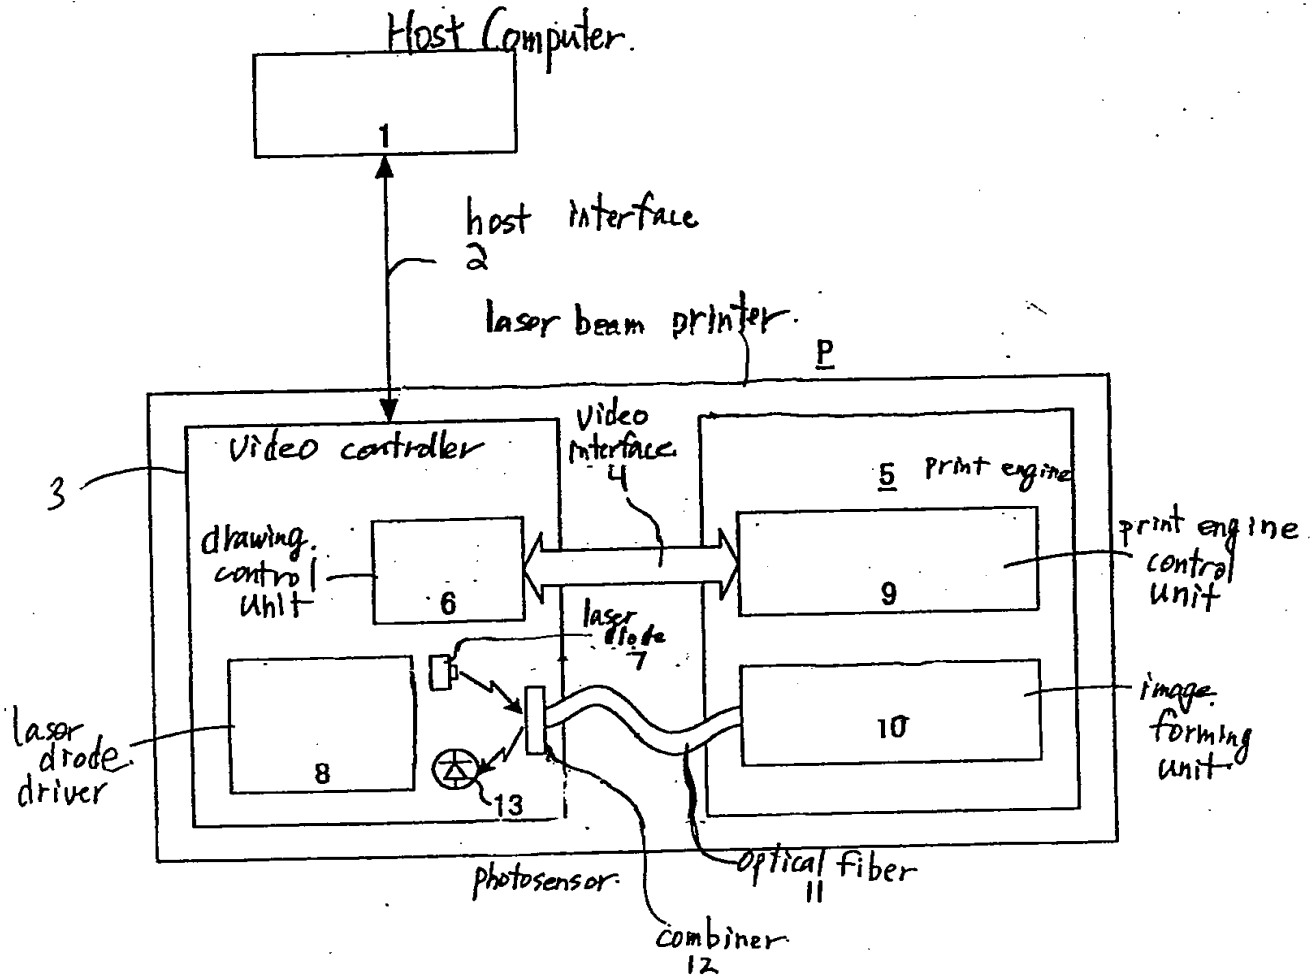 Host Computer.
1
host interface
2
laser beam printer.
P
video controller
3
video
interface
4
5 print engine
drawing
control
unit
6
9
print engine
control
unit
laser
diode
7
laser
diode
driver
8
13
10
image
forming
unit
photosensor.
optical fiber
11
combiner
12